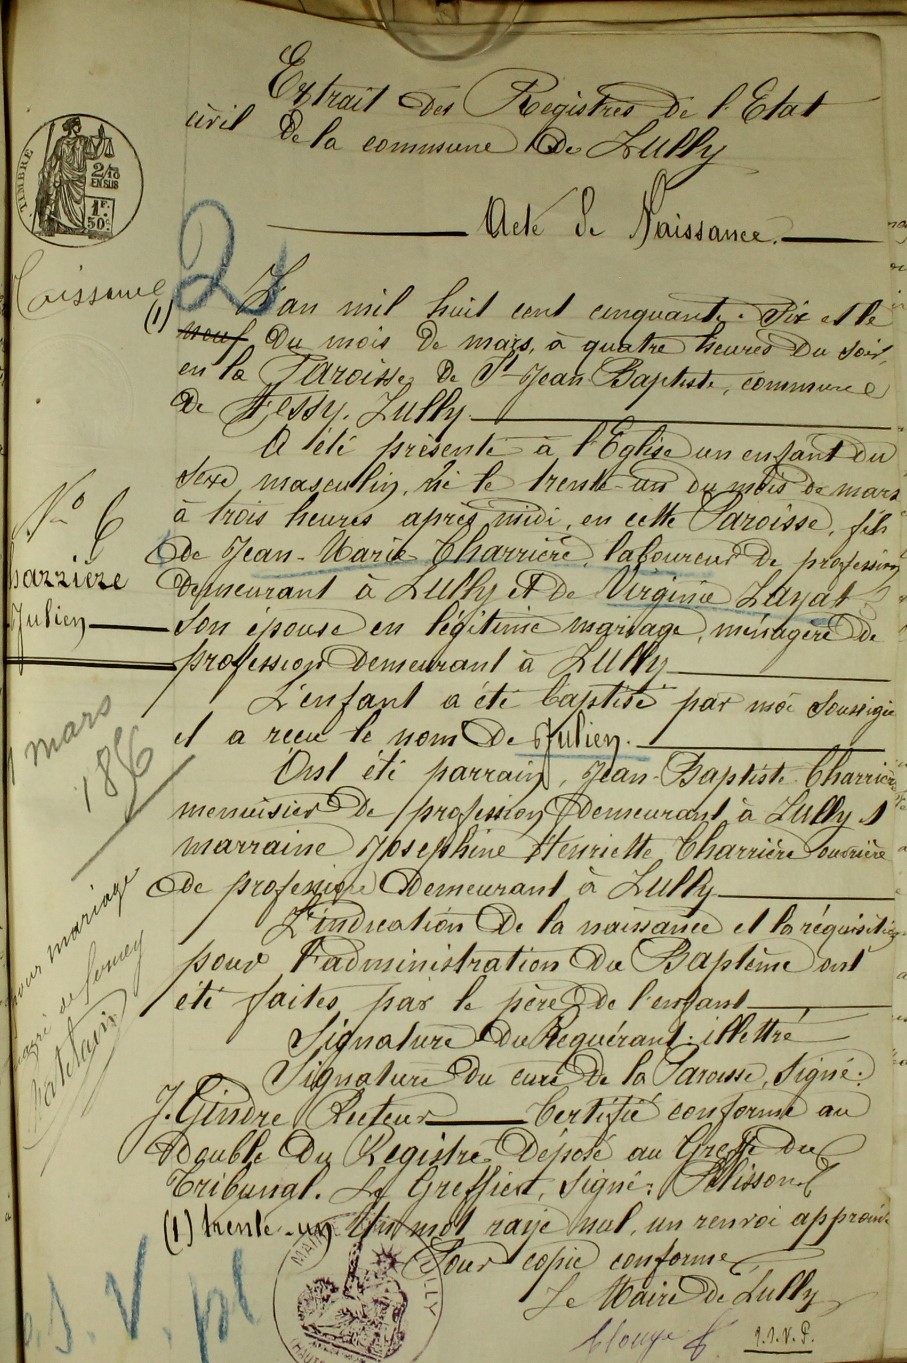 Extrait des Registres de l'Etat
civil de la commune de Lully
TIMBRE
2/10
EN SUS
1F.
50c
Acte de Naissance.
2
(1)
L'an mil huit cent cinquante-six et le
neuf du mois de mars, à quatre heures du soir,
en la Paroisse de St-Jean-Baptiste, commune
de Fessy-Lully.
A été présenté à l'Eglise un enfant du
sexe masculin, né le trente-un du mois de mars
à trois heures après midi, en cette Paroisse, fils
de Jean-Marie Charrière, laboureur de profession
demeurant à Lully et de Virginie Layat
son épouse en légitime mariage, ménagère de
profession demeurant à Lully
L'enfant a été baptisé par moi soussigné
et a reçu le nom de Julien.
Ont été parrain, Jean-Baptiste Charrière
menuisier de profession demeurant à Lully et
marraine Josephine Henriette Charrière ouvrière
de profession demeurant à Lully
L'indication de la naissance et la réquisition
pour l'administration du Baptême ont
été faites par le père de l'enfant
Signature du Requérant: illettré
Signature du curé de la Paroisse, signé:
J. Gindre Recteur Certifié conforme au
double du Registre déposé au Greffe du
Tribunal. Le Greffier, signé: Pelisson
(1) trente-un Un mot rayé nul, un renvoi approuvé
Pour copie conforme
Le Maire de Lully
MAIRIE
LULLY
No 6
Charrière
Julien
mars
1856
pour mariage